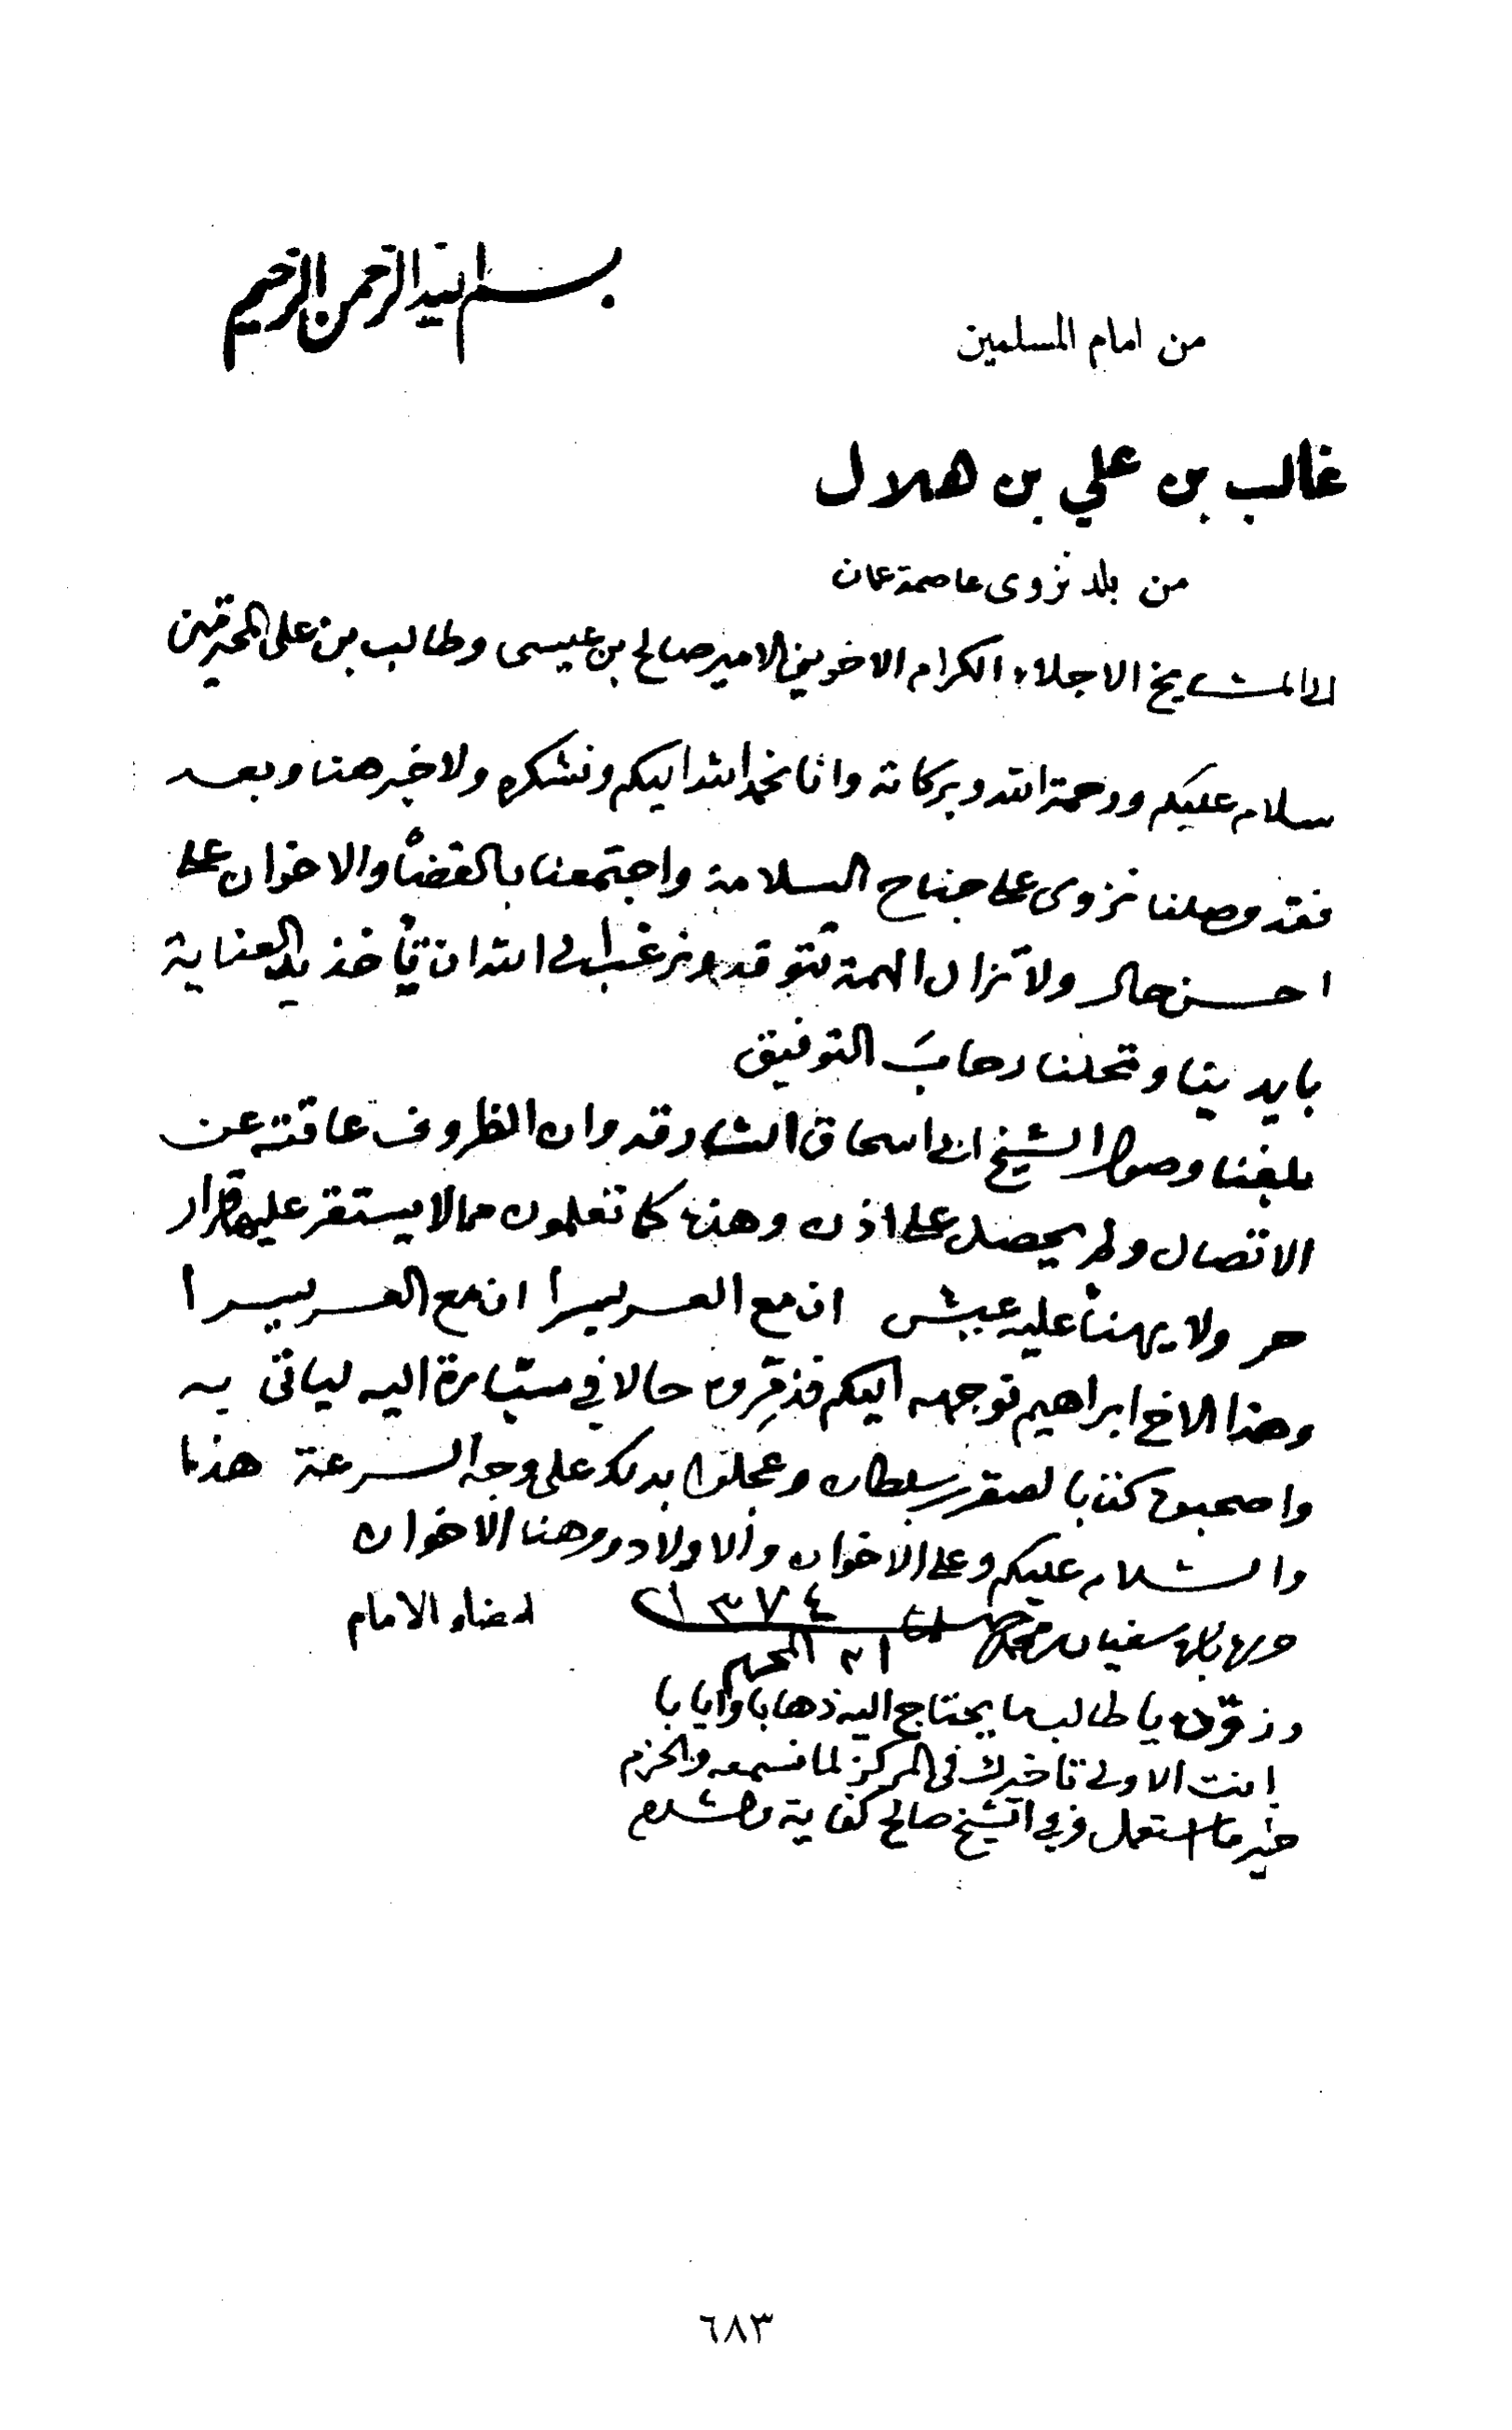 بسم الله الرحمن الرحيم
من امام المسلمين
غالب بن علي بن هلال
من بلد نزوى عاصمة عمان
الى المشايخ الاجلاء الكرام الاخوين الامير صالح بن عيسى وطالب بن علي المحترمين
سلام عليكم ورحمة الله وبركاته وانا نحمد الله اليكم ونشكره ولا خبر هنا وبعد
فقد وصلنا نزوى على جناح السلامة واجتمعنا بالقضاة والاخوان على
احسن حال ولا تزال الهمة تتوقد ونرغب الى الله ان تأخذ يد العناية
بايدينا وتحلنا رحاب التوفيق
بلغنا وصول الشيخ ابي اسحاق الشارقه وان الظروف عاقته عن
الاتصال ولم يحصل على اذن وهذه كما تعلمون مما لا يستقر عليها قرار
حر ولا يهنأ عليه عيش ان مع العسر يسرا ان مع العسر يسرا
وهذا الاخ ابراهيم توجهه اليكم حالا في سيارة اليه لياتى به
واصحبوه كتابا لصقر بن سلطان وعجلوا بذلك على وجه السرعة هذا
والسلام عليكم وعلى الاخوان والاولاد ومن هنا الاخوان
سفيان بن محمد
١٣٧٤
٢١ المحرم
امضاء الامام
وزودوه يا طالب ما يحتاج اليه ذهابا وايابا
انت الاولى تاخيرك فى المركز لما نسمعه والحزم
خير ما استعمل وفي الشيخ صالح كفاية والسلام
٦٨٣